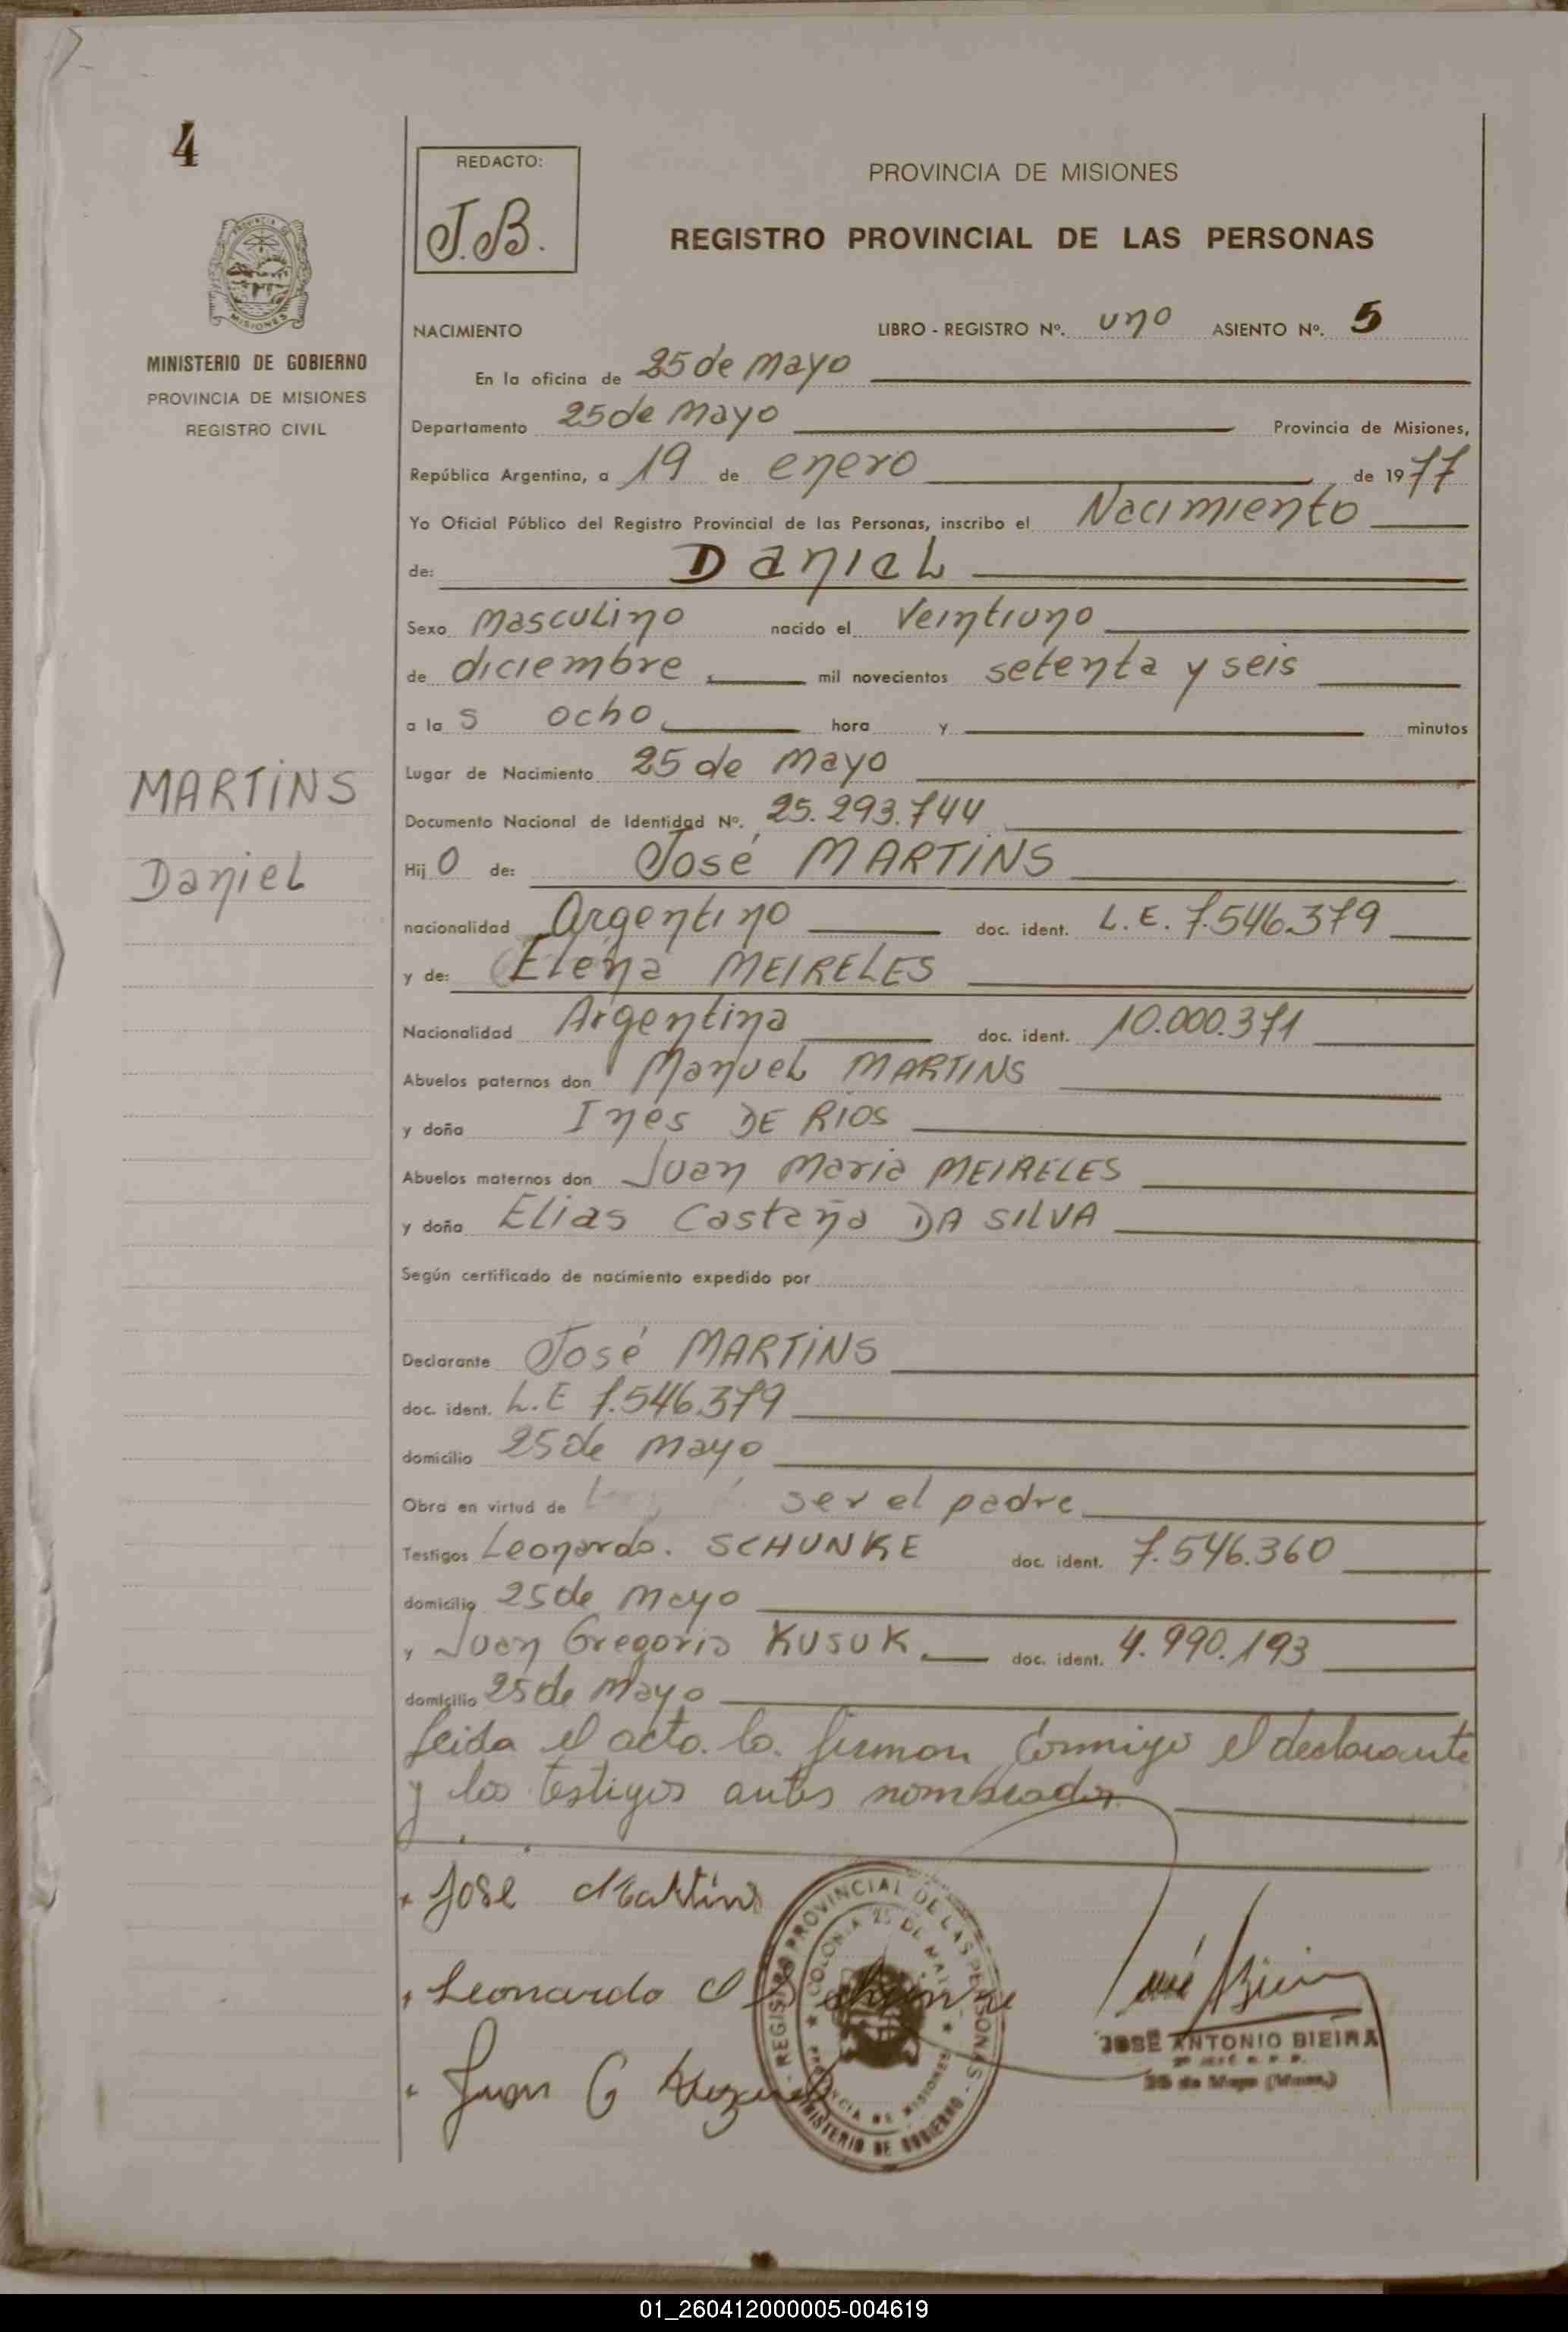 4
REDACTO:
J.B.
PROVINCIA DE MISIONES
REGISTRO PROVINCIAL DE LAS PERSONAS
MISIONES
MINISTERIO DE GOBIERNO
PROVINCIA DE MISIONES
REGISTRO CIVIL
NACIMIENTO LIBRO - REGISTRO Nº. uno ASIENTO Nº. 5
En la oficina de 25 de Mayo
Departamento 25 de Mayo Provincia de Misiones,
República Argentina, a 19 de enero de 1977
Yo Oficial Público del Registro Provincial de las Personas, inscribo el Nacimiento
de: Daniel
Sexo masculino nacido el Veintiuno
de diciembre mil novecientos setenta y seis
a la s ocho hora y minutos
Lugar de Nacimiento 25 de Mayo
Documento Nacional de Identidad Nº. 25.293.744
MARTINS
Daniel
Hij o de: José MARTINS
nacionalidad Argentino doc. ident. L.E. 7.546.379
y de: Elena MEIRELES
Nacionalidad Argentina doc. ident. 10.000.371
Abuelos paternos don Manuel MARTINS
y doña Inés DE RIOS
Abuelos maternos don Juan Maria MEIRELES
y doña Elias Castaña DA SILVA
Según certificado de nacimiento expedido por
Declarante José MARTINS
doc. ident. L.E 7.546.379
domicilio 25 de Mayo
Obra en virtud de ser el padre
Testigos Leonardo. SCHUNKE doc. ident. 7.546.360
domicilio 25 de Mayo
y Juan Gregorio KUSUK doc. ident. 4.990.193
domicilio 25 de Mayo
leida el acta. la. firman conmigo el declarante
y los testigos antes nombrados
José Martins
Leonardo Schunke
Juan G
REGISTRO PROVINCIAL DE LAS PERSONAS
COLONIA 25 DE MAYO
PROVINCIA DE MISIONES
MINISTERIO DE GOBIERNO
José Bieira
JOSE ANTONIO BIEIRA
25 de Mayo (Mnes.)
01_260412000005-004619